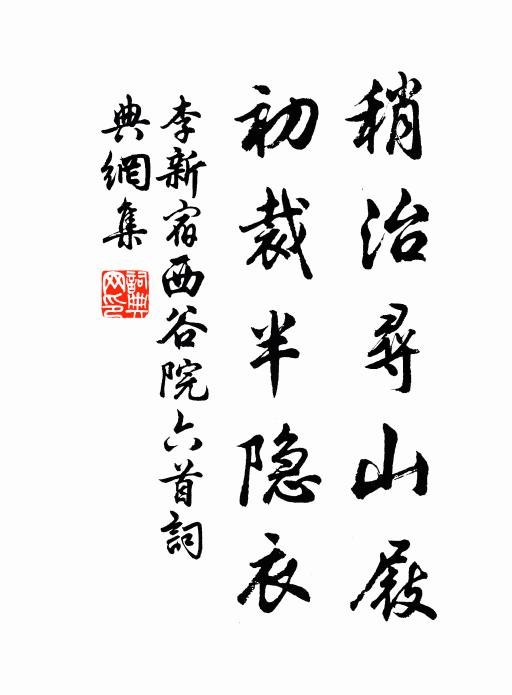 稍治尋山屐
初裁半隐衣
李新宿西谷院六首詞
典網集
詞典網印